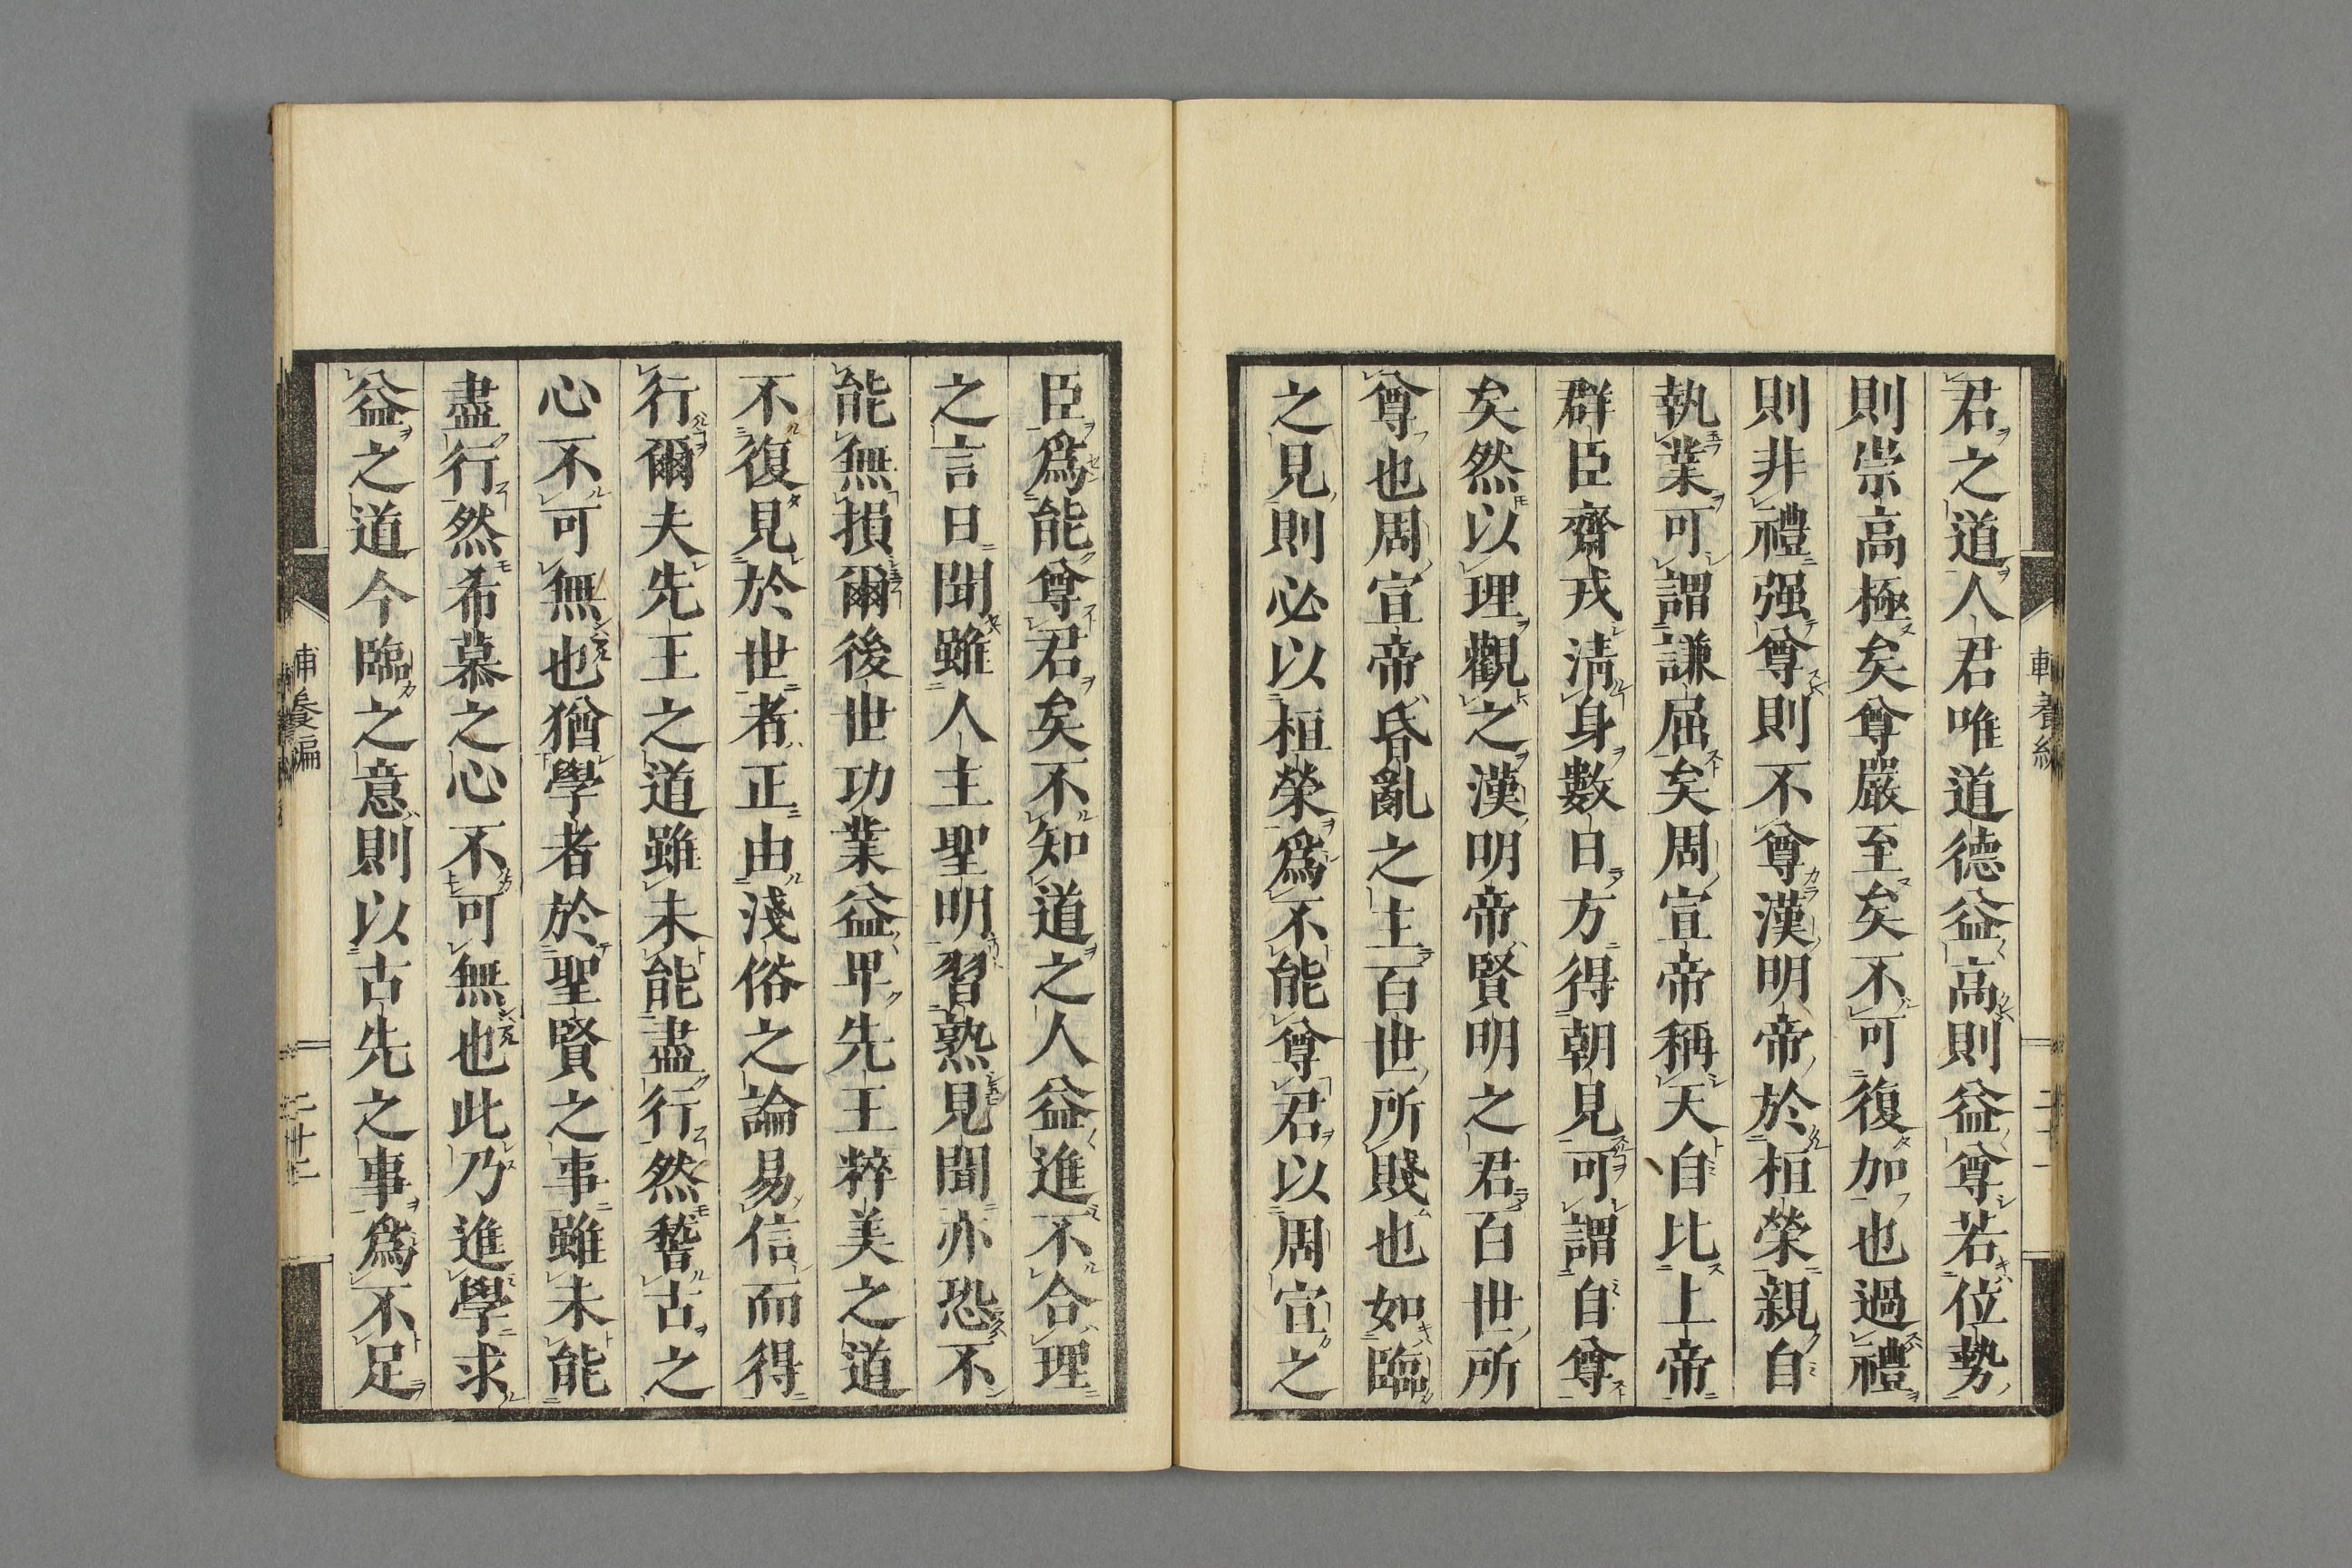 君之道人君唯道德益高則益尊若位勢
則崇高極矣尊嚴至矣不可復加也過禮
則非禮强尊則不尊漢明帝於桓榮親自
執業可謂謙屈矣周宣帝稱天自比上帝
群臣齋戒淸身數日方得朝見可謂自尊
矣然以理觀之漢明帝賢明之君百世所
尊也周宣帝昏亂之主百世所賤也如臨
之見則必以桓榮爲不能尊君以周宣之
臣爲能尊君矣不知道之人益進不合理
之言日聞雖人主聖明習熟見聞亦恐不
能無損爾後世功業益卑先王粹美之道
不復見於世者正由淺俗之論易信而得
行爾夫先王之道雖未能盡行然稽古之
心不可無也猶學者於聖賢之事雖未能
盡行然希慕之心不可無也此乃進學求
益之道今臨之意則以古先之事爲不足
輔養編
二十二